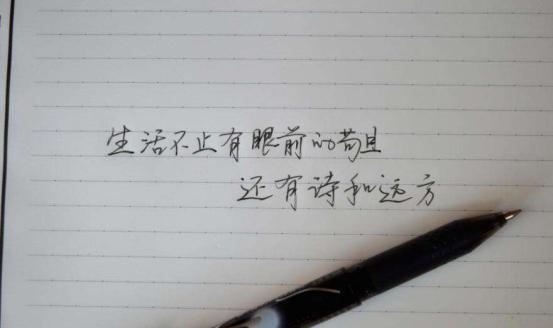 生活不止有眼前的苟且
还有诗和远方